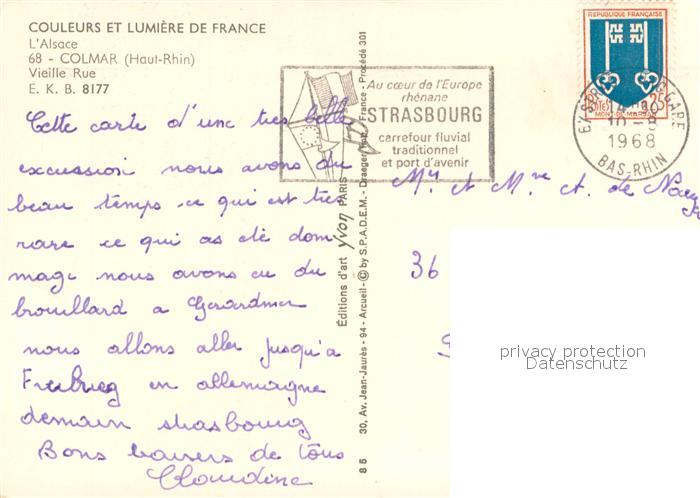 COULEURS ET LUMIÈRE DE FRANCE
L'Alsace
68 - COLMAR (Haut-Rhin)
Vieille Rue
E. K. B. 8177
Cette carte d'une tres belle
excussion nous avons du
beau temps ce qui est tres
rare ce qui as eté dom
mage nous avons eu du
brouillard a Gerardmer
nous allons aller jusqu'a
en allemagne
demain strasbourg
Bons baisers de tous
Claudine
Editions d'art yvon PARIS
30, Av. Jean-Jaurès - 94 - Arcueil - © by S.P.A.D.E.M. - Draeger Imp. France - Procédé 301
85
Au cœur de l'Europe
rhénane
STRASBOURG
carrefour fluvial
traditionnel
et port d'avenir
REPUBLIQUE FRANÇAISE
POSTES
0,25
MONT-DE-MARSAN
GARE
10 - 8
1968
BAS-RHIN
Mr et Mme A. de
36
privacy protection
Datenschutz